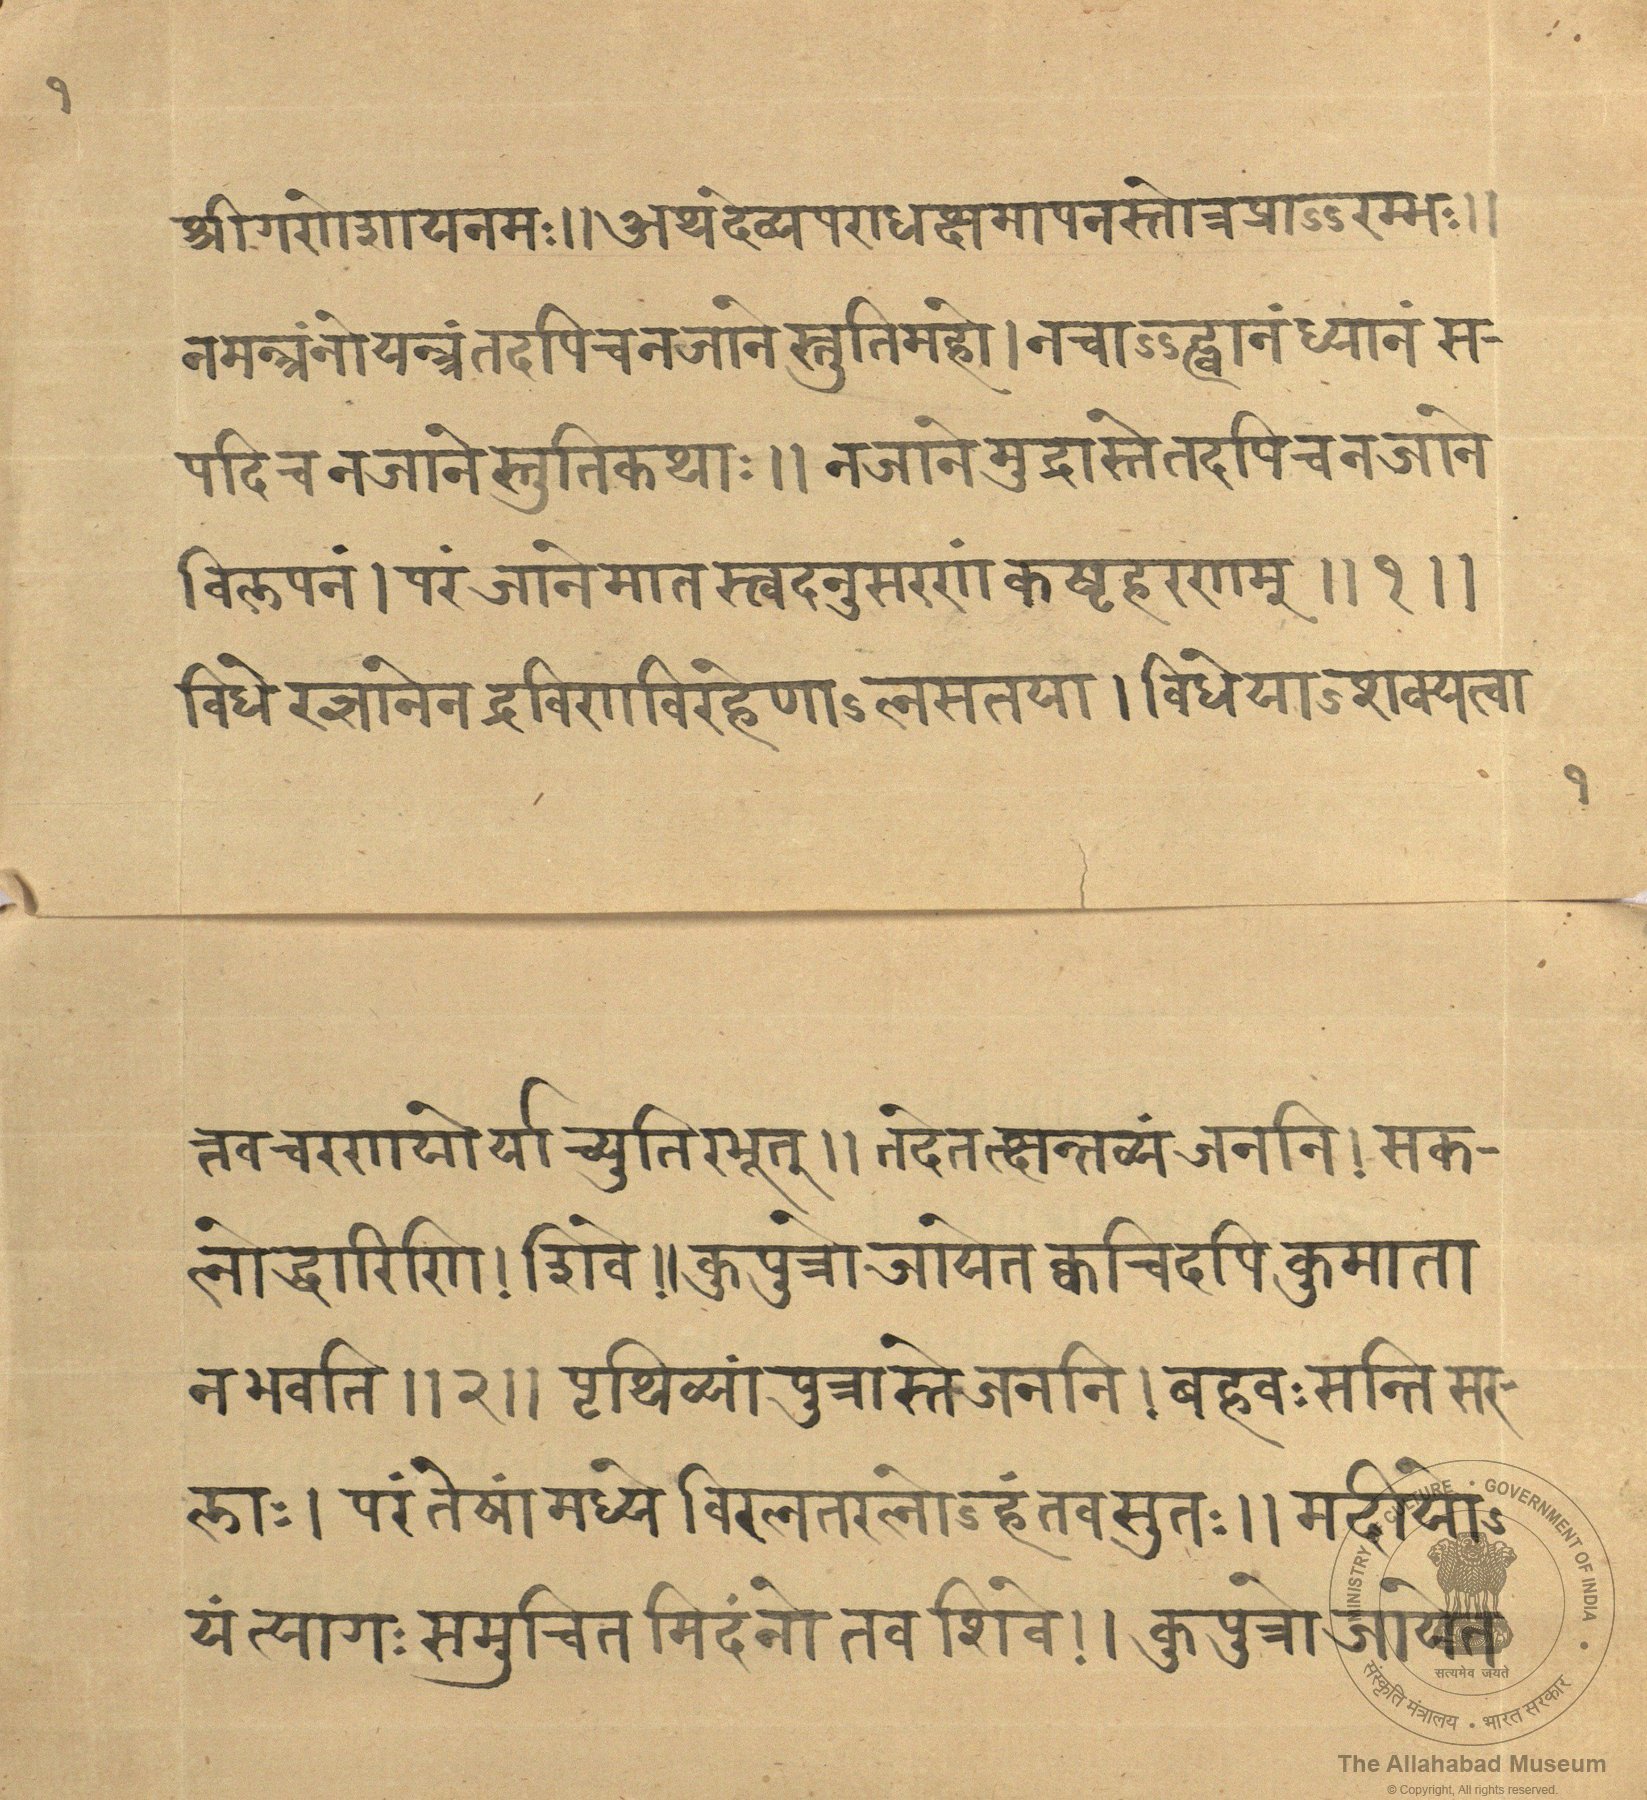 १
श्रीगणेशायनमः॥अथंदेव्यपराधक्षमापनस्तोत्रप्राऽऽरम्भः॥
नमन्त्रंनोयन्त्रंतदपिचनजानेस्तुतिमहो।नचाऽऽह्वानंध्यानं स-
पदिचनजानेस्तुतिकथाः॥ नजानेमुद्रास्तेतदपिचनजाने
विलपनं।परंजानेमातस्त्वदनुसरणंकष्षृहरणम्॥१॥
विधेरज्ञानेनद्रविणविरहेणाऽलसतया।विधेयाऽशक्यत्वा
१
त्तवचरणयोर्याच्युतिरभूत्॥तदेतत्क्षन्तव्यंजननि!सक-
लोद्धारिणि!शिवे!॥कुपुत्रोजायेतक्वचिदपिकुमाता
नभवति॥२॥ पृथिव्यांपुत्रास्तेजननि!बहवःसन्तिसर-
लाः। परंतेषांमध्येविरलतरलोऽहंतवसुतः॥मदीयोऽ
यंत्यागःसमुचितमिदंनोतवशिवे!।कुपुत्रोजायेत
MINISTRY OF CULTURE • GOVERNMENT OF INDIA
सत्यमेव जयते
संस्कृति मंत्रालय • भारत सरकार
The Allahabad Museum
© Copyright, All rights reserved.